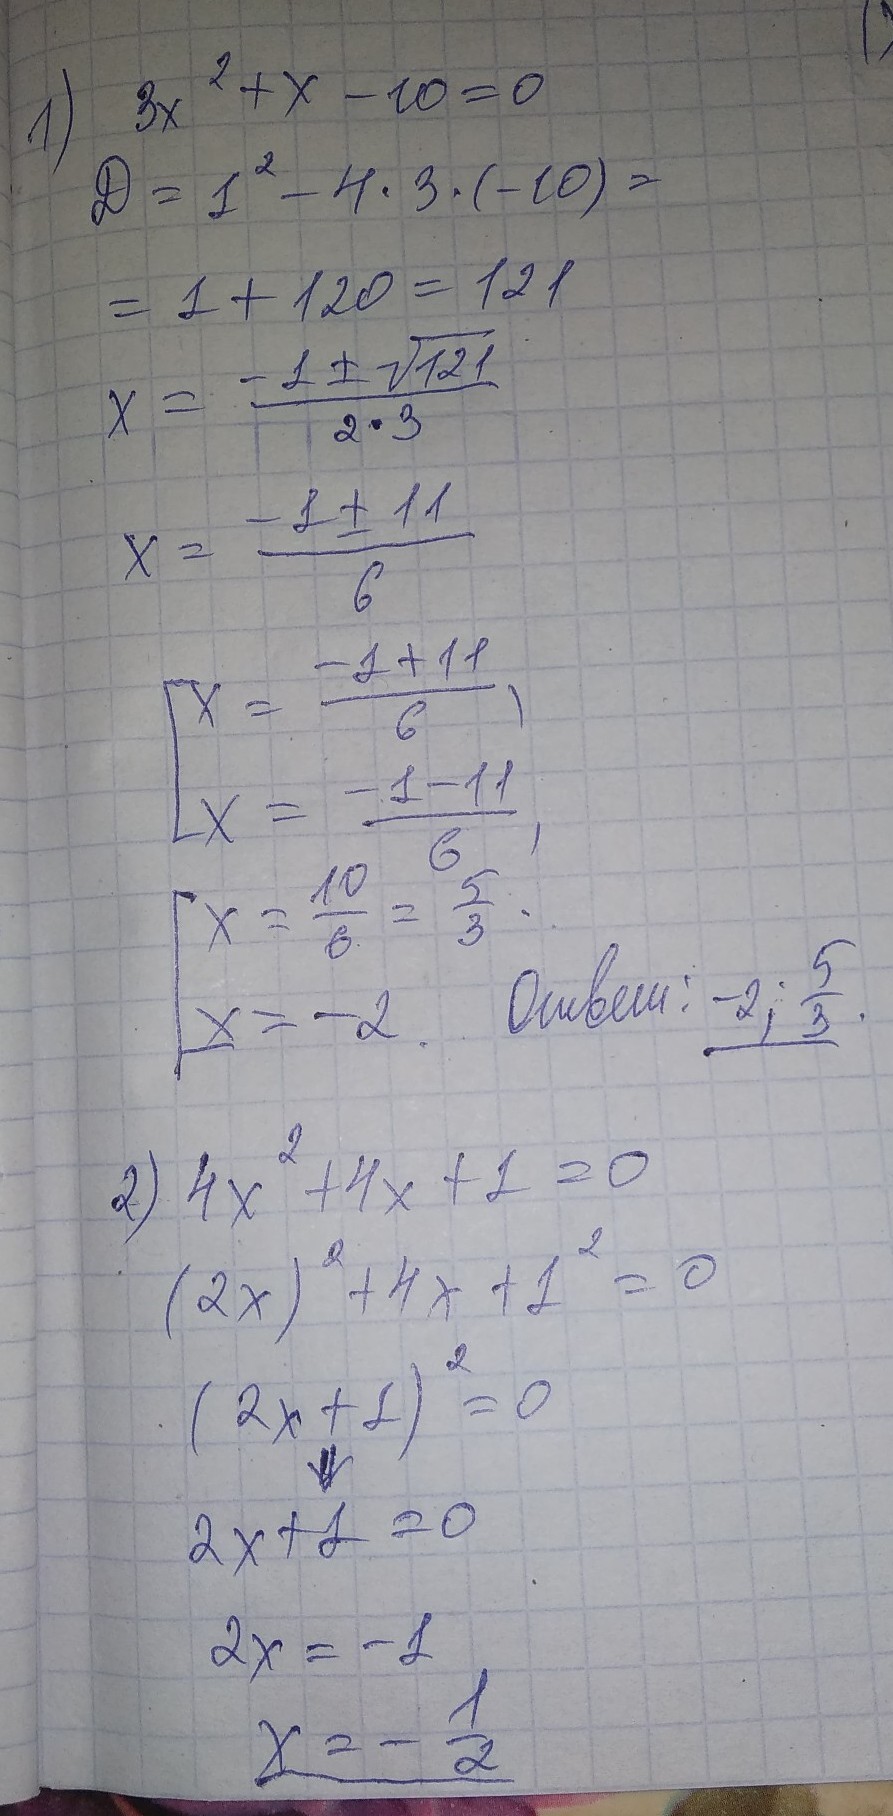 1) 3x² + x − 10 = 0
D = 1² − 4 · 3 · (−10) =
= 1 + 120 = 121
x = (−1 ± √121) / (2 · 3)
x = (−1 ± 11) / 6
[ x = (−1 + 11) / 6 ,
x = (−1 − 11) / 6 ,
[ x = 10/6 = 5/3 .
x = −2 . Ответ: −2; 5/3 .
2) 4x² + 4x + 1 = 0
(2x)² + 4x + 1² = 0
(2x + 1)² = 0
⇓
2x + 1 = 0
2x = −1
x = − 1/2